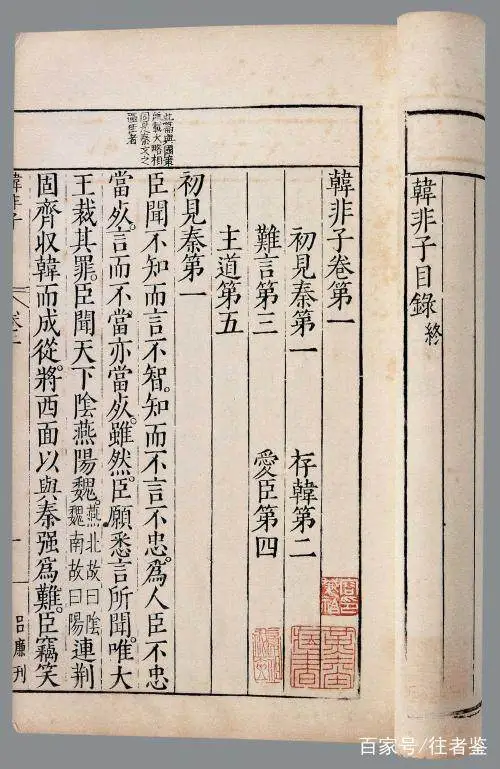 韓非子目錄終
韓非子卷第一
初見秦第一　存韓第二
難言第三　愛臣第四
主道第五
初見秦第一
臣聞不知而言不智。知而不言不忠。爲人臣不忠
當死。言而不當亦當死。雖然。臣願悉言所聞。唯大
王裁其罪。臣聞天下陰燕陽魏。燕北故曰陰魏南故曰陽連荆
固齊收韓而成從。將西面以與秦强爲難。臣竊笑
此篇與國策
所載大略相
同是秦文之
韓非子
卷一
一
呂廉刊
百家号/往者鉴